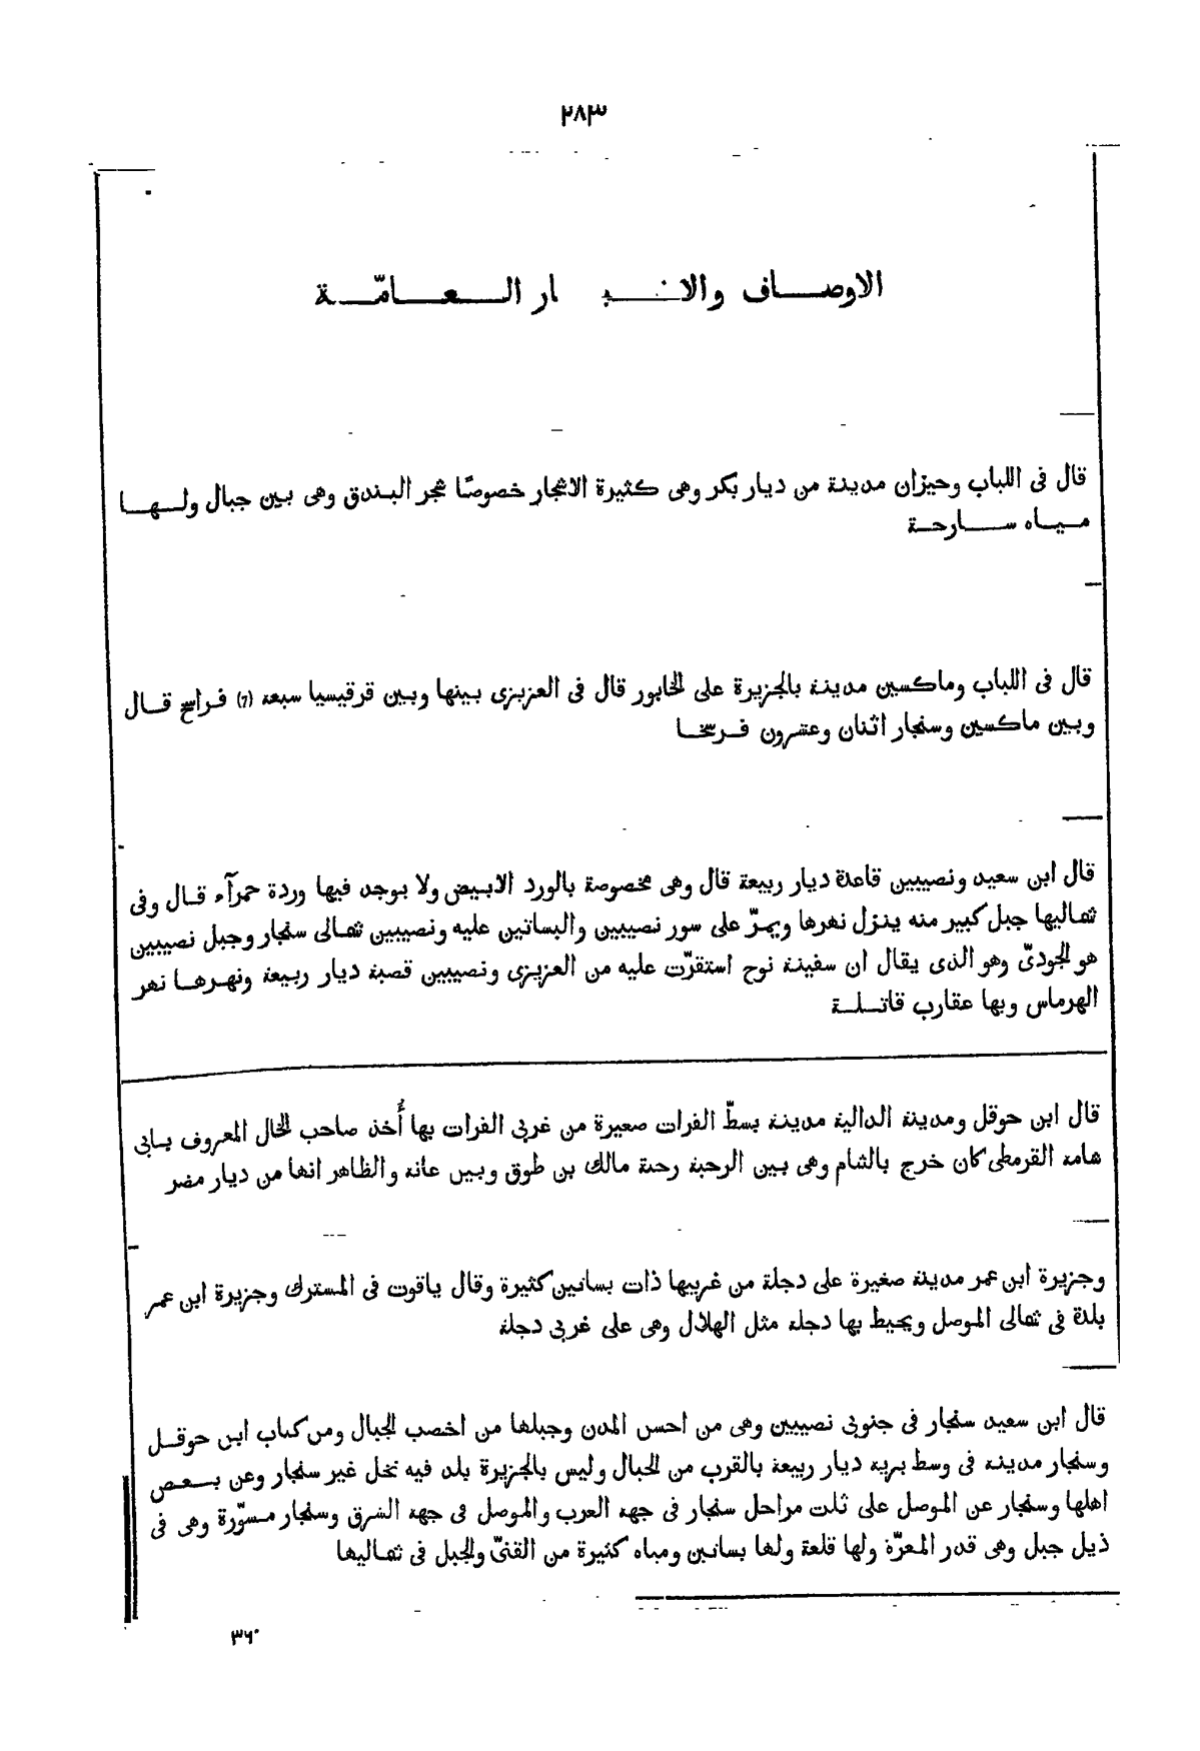 ٢٨٣
الاوصاف والاخبار العامّة
قال فى اللباب وحيزان مدينة من ديار بكر وهى كثيرة الاشجار خصوصًا شجر البندق وهى بين جبال ولها
مياه سارحة
قال فى اللباب وماكسين مدينة بالجزيرة على الخابور قال فى العزيزى بينها وبين قرقيسيا سبعة (7) فراسخ قال
وبين ماكسين وسنجار اثنان وعشرون فرسخا
قال ابن سعيد ونصيبين قاعدة ديار ربيعة قال وهى مخصوصة بالورد الابيض ولا يوجد فيها وردة حمرآء قال وفى
شماليها جبل كبير منه ينزل نهرها ويمرّ على سور نصيبين والبساتين عليه ونصيبين شمالى سنجار وجبل نصيبين
هو الجودىّ وهو الذى يقال ان سفينة نوح استقرّت عليه من العزيزى ونصيبين قصبة ديار ربيعة ونهرها نهر
الهرماس وبها عقارب قاتلة
قال ابن حوقل ومدينة الدالية مدينة بسطّ الفرات صعيرة من غربى الفرات بها أُخذ صاحب الخال المعروف بابى
هامة القرمطى كان خرج بالشام وهى بين الرحبة رحبة مالك بن طوق وبين عانة والظاهر انها من ديار مضر
وجزيرة ابن عمر مدينة صغيرة على دجلة من غربيها ذات بساتين كثيرة وقال ياقوت فى المسترك وجزيرة ابن عمر
بلدة فى شمالى الموصل ويحيط بها دجلة مثل الهلال وهى على غربى دجلة
قال ابن سعيد سنجار فى جنوبى نصيبين وهى من احسن المدن وجبلها من اخصب الجبال ومن كتاب ابن حوقل
وسنجار مدينة فى وسط برية ديار ربيعة بالقرب من الجبال وليس بالجزيرة بلد فيه نخل غير سنجار وعن بعص
اهلها وسنجار عن الموصل على ثلث مراحل سنجار فى جهة العرب والموصل فى جهة الشرق وسنجار مسوّرة وهى فى
ذيل جبل وهى قدر المعرّة ولها قلعة ولها بساتين ومياه كثيرة من القنىّ والجبل فى شماليها
٣٦